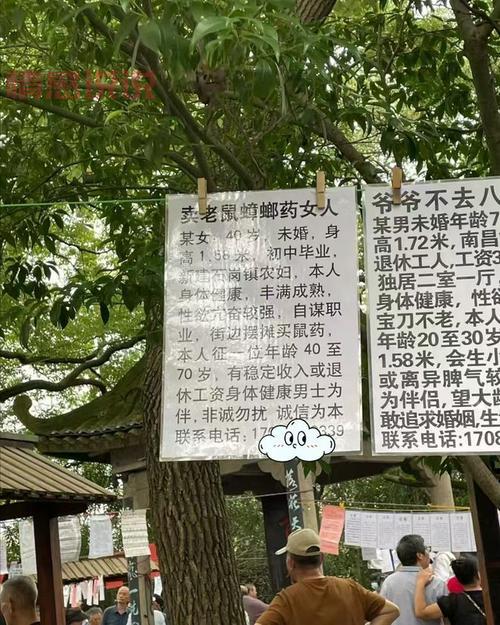 情感说说
卖老鼠蟑螂药女人
某女：40岁，未婚，身
高1.58米，初中毕业，
新建石岗镇农妇，本人
身体健康，丰满成熟，
性欲亢奋较强，自谋职
业，街边摆摊买鼠药，
本人征一位年龄40至
70岁，有稳定收入或退
休工资身体健康男士为
伴，非诚勿扰 诚信为本
联系电话：17 339
爷爷不去八
某男未婚年龄7
高1.72米，南昌
退休工人，工资3
独居二室一厅，
身体健康，性
宝刀不老，本人
年龄20至30岁
1.58米，会生小
或离异脾气较
为伴侣，
望大龄
敢追求婚姻，生
联系电话：170